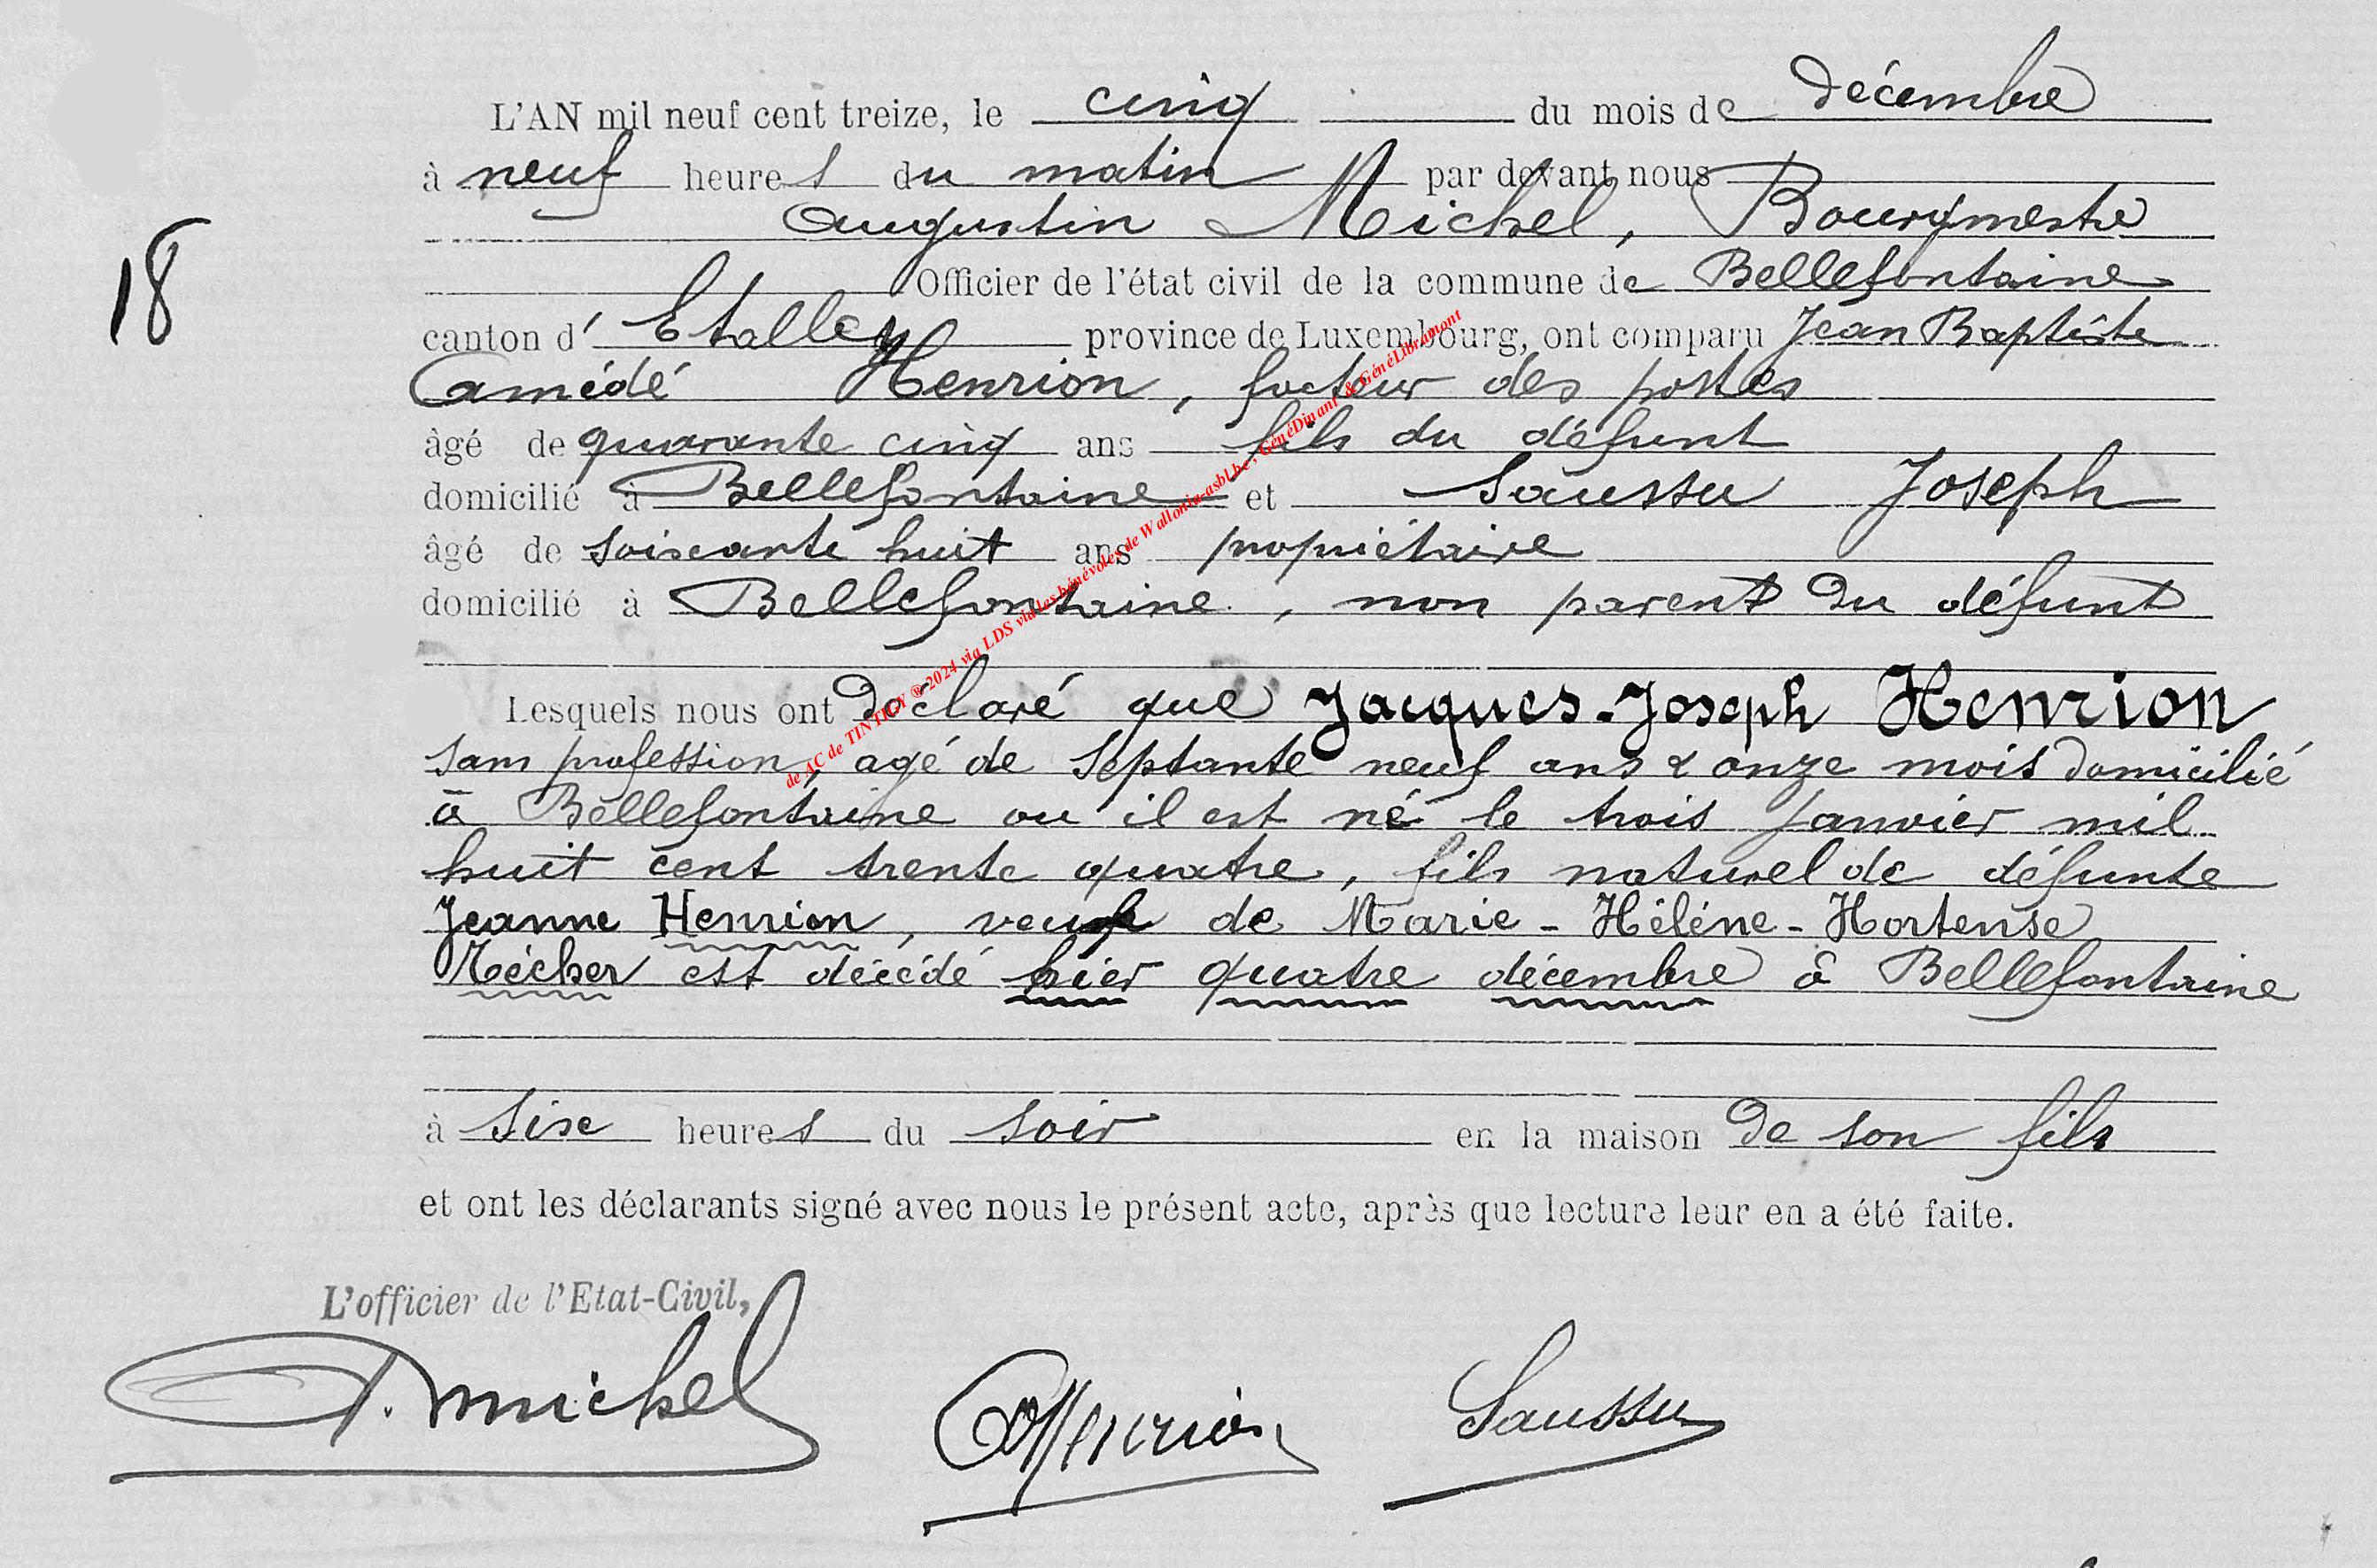 L'AN mil neuf cent treize, le cinq du mois de décembre
à neuf heures du matin par devant nous
Augustin Michel, Bourgmestre
18
Officier de l'état civil de la commune de Bellefontaine
canton d' Etalle province de Luxembourg, ont comparu Jean Baptiste
Amédé Henrion, facteur des postes
âgé de quarante cinq ans fils du défunt
domicilié à Bellefontaine et Saussu Joseph
âgé de soixante huit ans propriétaire
domicilié à Bellefontaine, non parent du défunt
Lesquels nous ont déclaré que Jacques-Joseph Henrion
sans profession, agé de septante neuf ans & onze mois domicilié
à Bellefontaine ou il est né le trois Janvier mil
huit cent trente quatre, fils naturel de défunte
Jeanne Henrion, veuf de Marie-Héléne-Hortense
est décédé hier quatre décembre à Bellefontaine
à six heures du soir en la maison de son fils
et ont les déclarants signé avec nous le présent acte, après que lecture leur en a été faite.
L'officier de l'Etat-Civil,
A. Michel Henrion Saussu
de AC de TINTIGNY ® 2024 via LDS via les bénévoles de Wallonia-asbl.be, GénéDinant & GénéLibramont